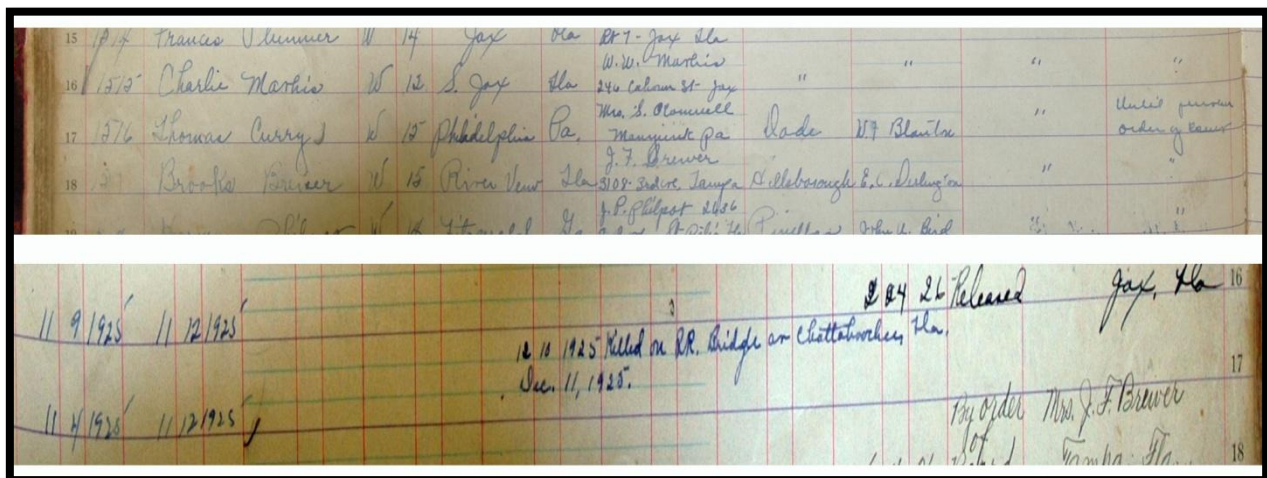 15 Frances Plummer W 14 Jax Rt 7 - Jax Fla
W. W. Mathis
16 1515 Charlie Mathis W 12 S. Jax Fla 246 Calhoun St - Jax " " " "
Mrs. S.
17 1516 Thomas Curry W 15 Philadelphia Pa. Manyunk Pa Dade W F " Until
order of
J. F. Brewer
18 Brooks Brewer W 15 River View Fla 3108 - 3rd Ave. Tampa Hillsborough E. C. Darlington " "
J. P. Philpot 2636
Pinellas John U. Bird " "
24 26 Released Jax, Fla 16
11 9 1925 11 12 1925
12 10 1925 Killed on RR. Bridge at Chattahoochee, Fla.
Dec. 11, 1925. 17
11 4 1925 11 12 1925
By order Mrs. J. F. Brewer
of
Tampa Fla. 18